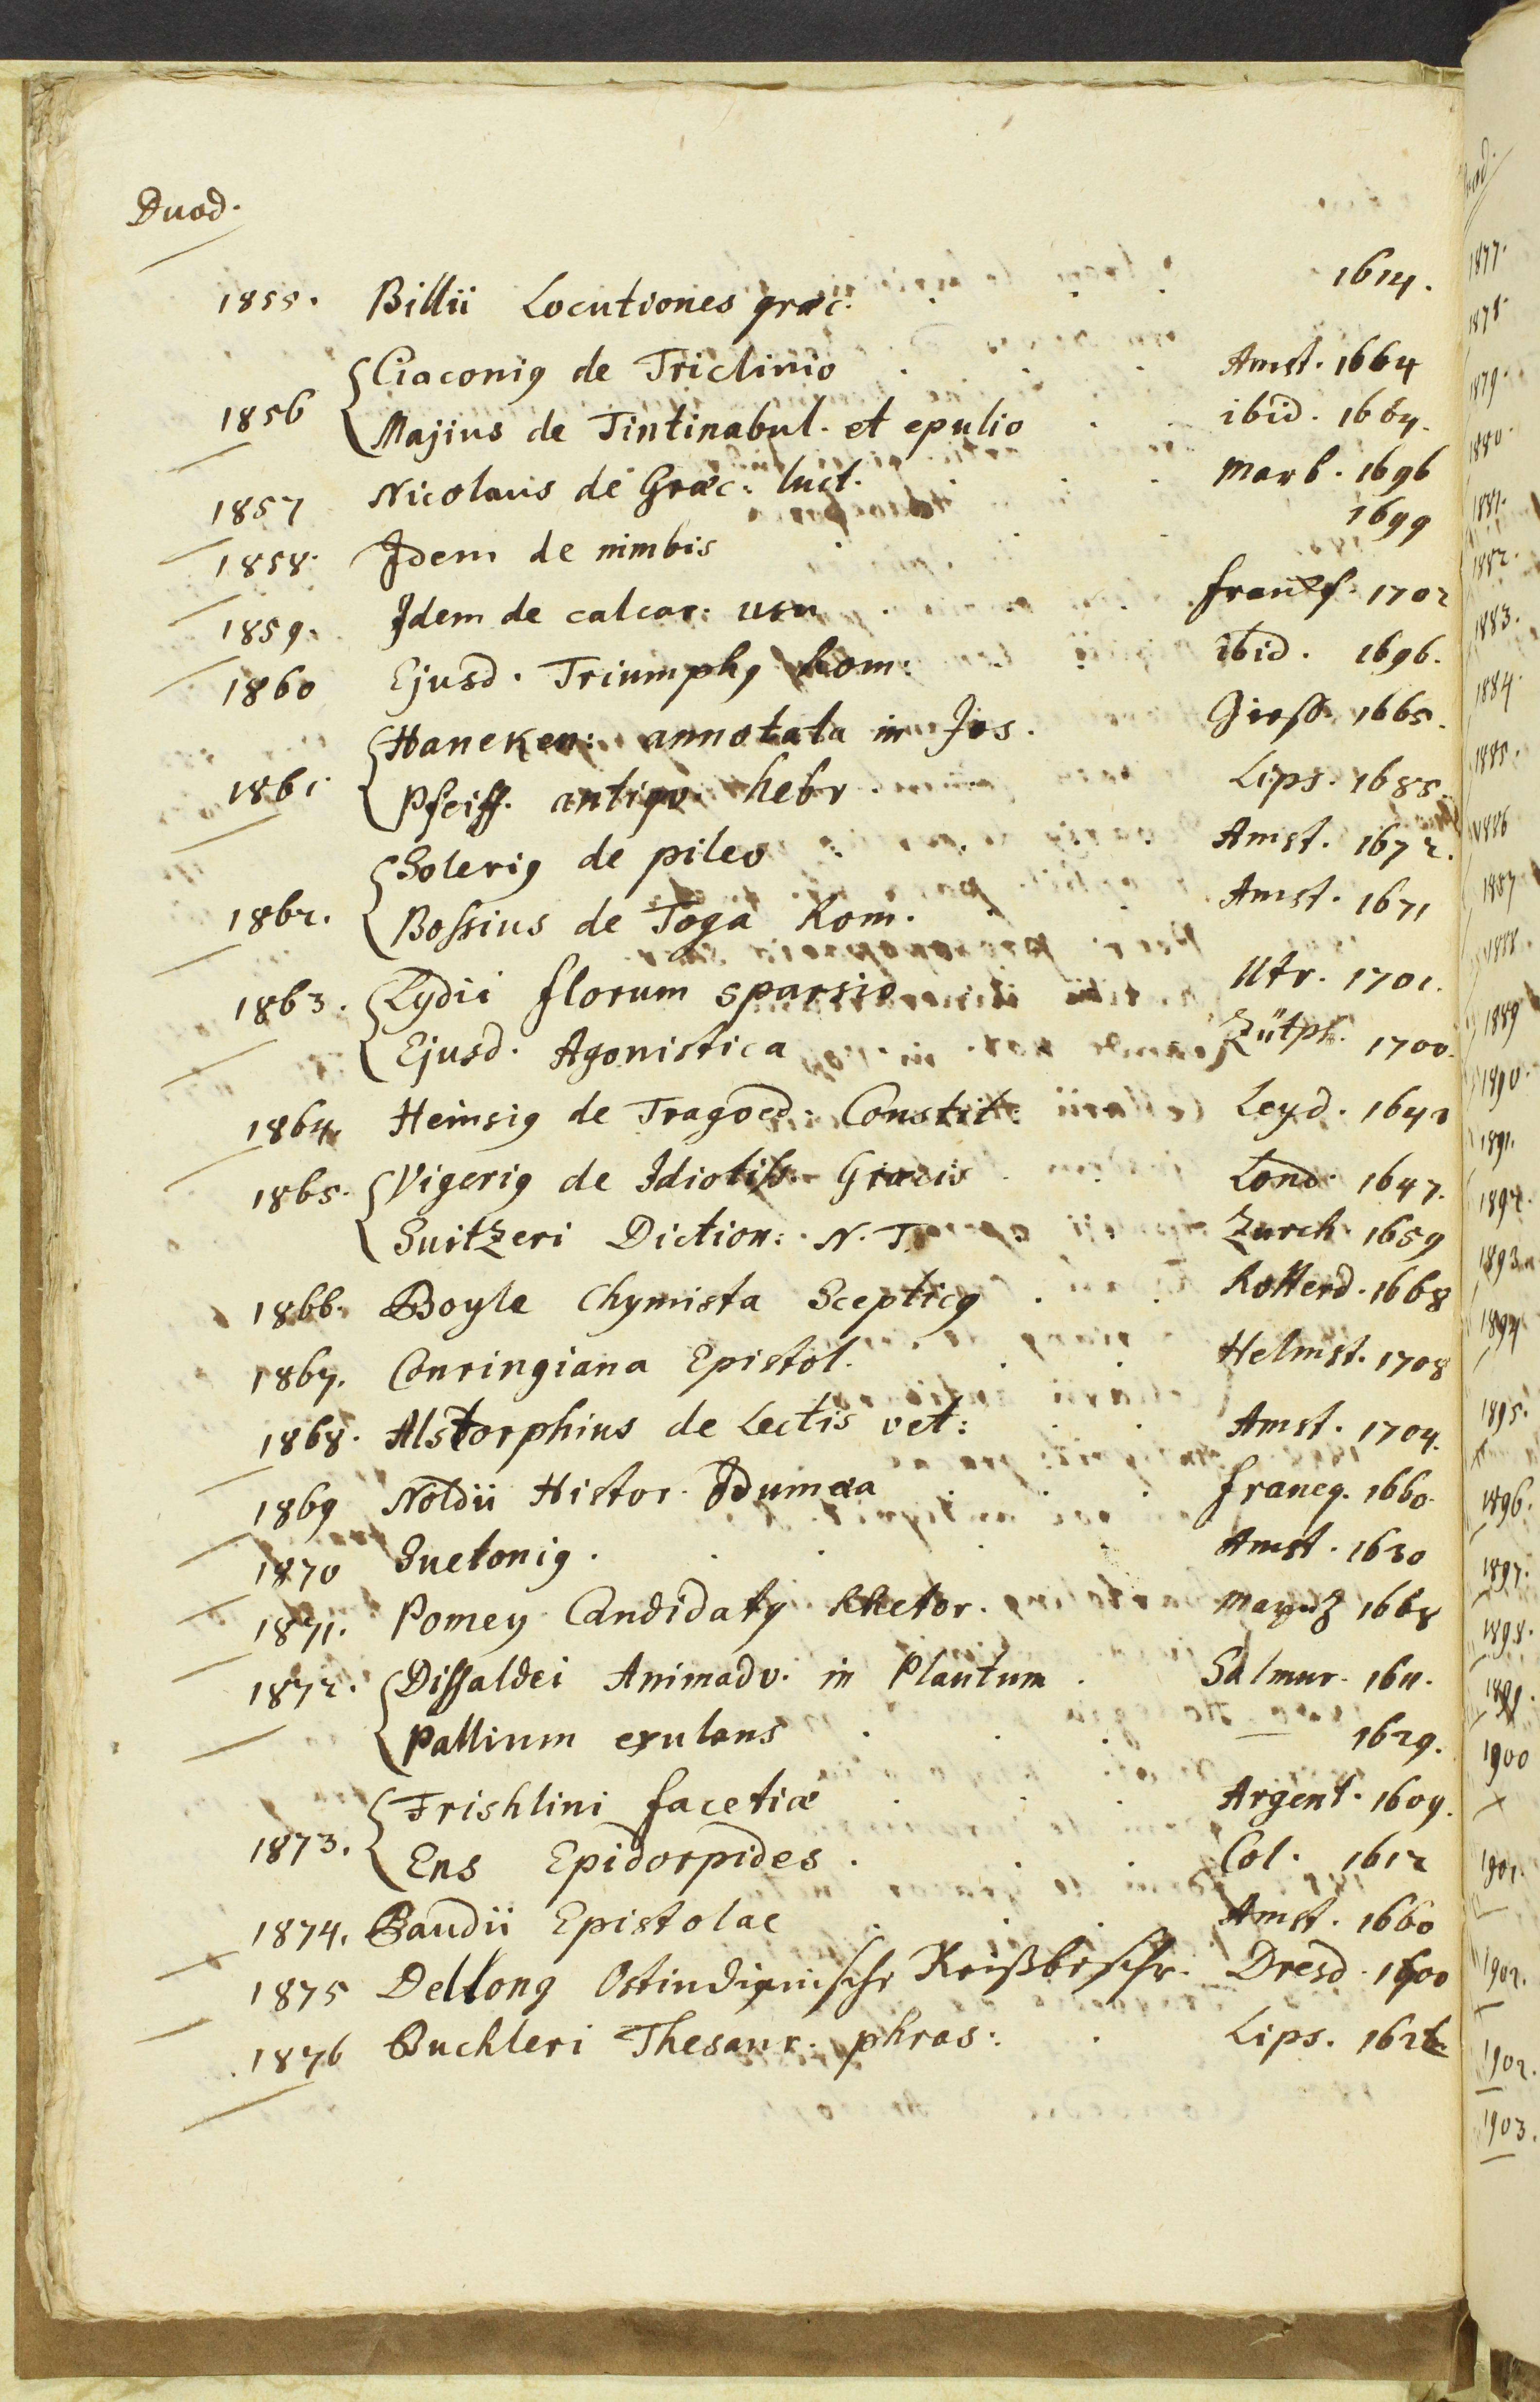 Duod.
1855. Billii Locutiones græc. 1614.
Ciaconig de Triclinio Amst. 1664
1856 Majius de Tintinabul. et epulio ibid. 1664.
1857 Nicolaus de Græc: luct. Marb. 1696
1858. Idem de nimbis 1699
1859. Idem de calcar: usu francf. 1702
1860 Ejusd. Triumphg Rom: ibid. 1696.
Haneken: annotata in Jos. Giess. 1665.
1861 Pfeiff. antiqv. hebr. Lips. 1685.
Solerig de pileo Amst. 1672.
1862. Bossius de Toga Rom. Amst. 1671
1863. Lydii florum sparsio Utr. 1701.
Ejusd. Agonistica Zütph. 1700.
1864. Heinsig de Tragoed: Constit: Leyd. 1642
1865. Vigerig de Idiotiss. Græcis Lond. 1647.
Suitzeri Diction: N. T. Zurch 1659
1866. Boyle Chymista Scepticg Rotterd. 1668
1867. Conringiana Epistol. Helmst. 1708
1868. Alstorphius de Lectis vet: Amst. 1704.
1869 Noldii Histor. Idumæa franeq. 1660.
1870 Suetonig. Amst. 1630
1871. Pomey Candidatg Rhetor. Maynz 1668
1872. Dissaldei Animadv. in Plautum Salmur. 1611.
Pallium exulans — 1629.
Frishlini facetiæ Argent. 1609.
1873. Ens Epidorpides. Col. 1612
1874. Baudii Epistolae Amst. 1660
1875 Dellong Ostindianische Reißbeschr. Dresd. 1700
1876 Buchleri Thesaur. phras: Lips. 1626
1877.
1878.
1879.
1880.
1881.
1882.
1883.
1884.
1885.
1886
1887
1888.
1889
1890.
1891.
1892.
1893.
1894
1895.
1896.
1897.
1898.
1899.
1900
1901.
1902.
1902.
1903.